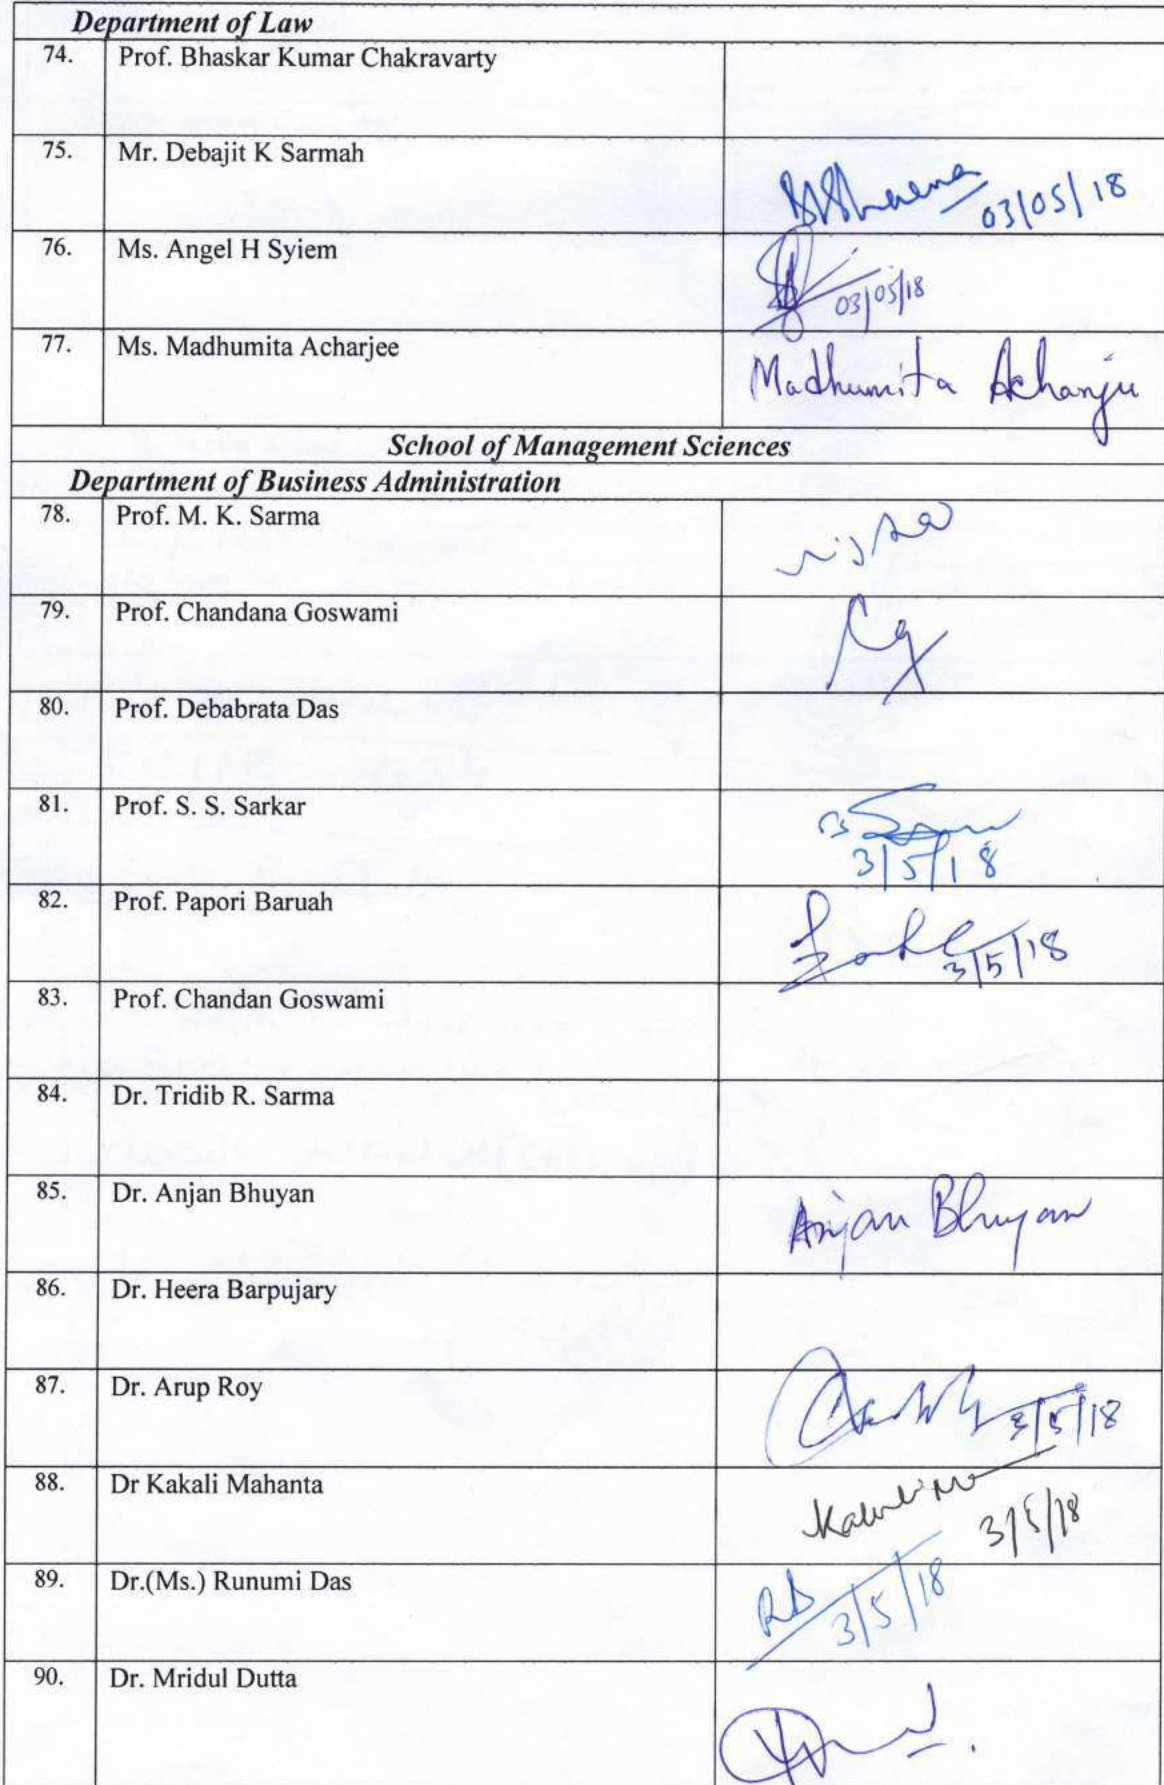 Department of Law
74. Prof. Bhaskar Kumar Chakravarty
75. Mr. Debajit K Sarmah
03/05/18
76. Ms. Angel H Syiem
03/05/18
77. Ms. Madhumita Acharjee Madhumita
School of Management Sciences
Department of Business Administration
78. Prof. M. K. Sarma
79. Prof. Chandana Goswami Cg
80. Prof. Debabrata Das
81. Prof. S. S. Sarkar
3/5/18
82. Prof. Papori Baruah
3/5/18
83. Prof. Chandan Goswami
84. Dr. Tridib R. Sarma
85. Dr. Anjan Bhuyan Anjan Bhuyan
86. Dr. Heera Barpujary
87. Dr. Arup Roy 3/5/18
88. Dr Kakali Mahanta
3/5/18
89. Dr.(Ms.) Runumi Das RD 3/5/18
90. Dr. Mridul Dutta